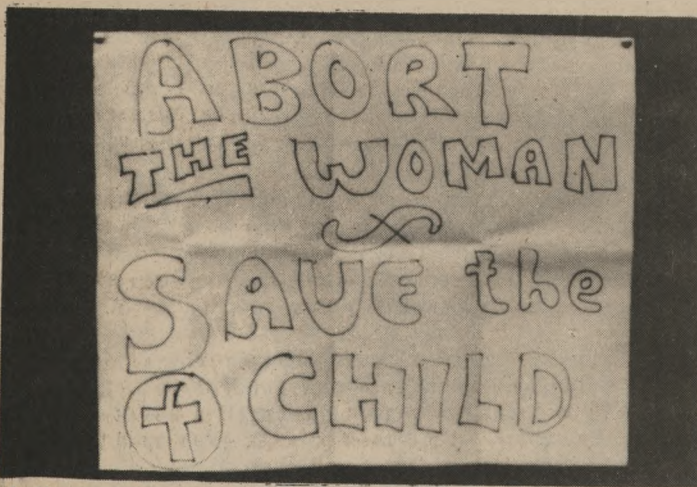 ABORT
THE WOMAN
SAVE the
CHILD